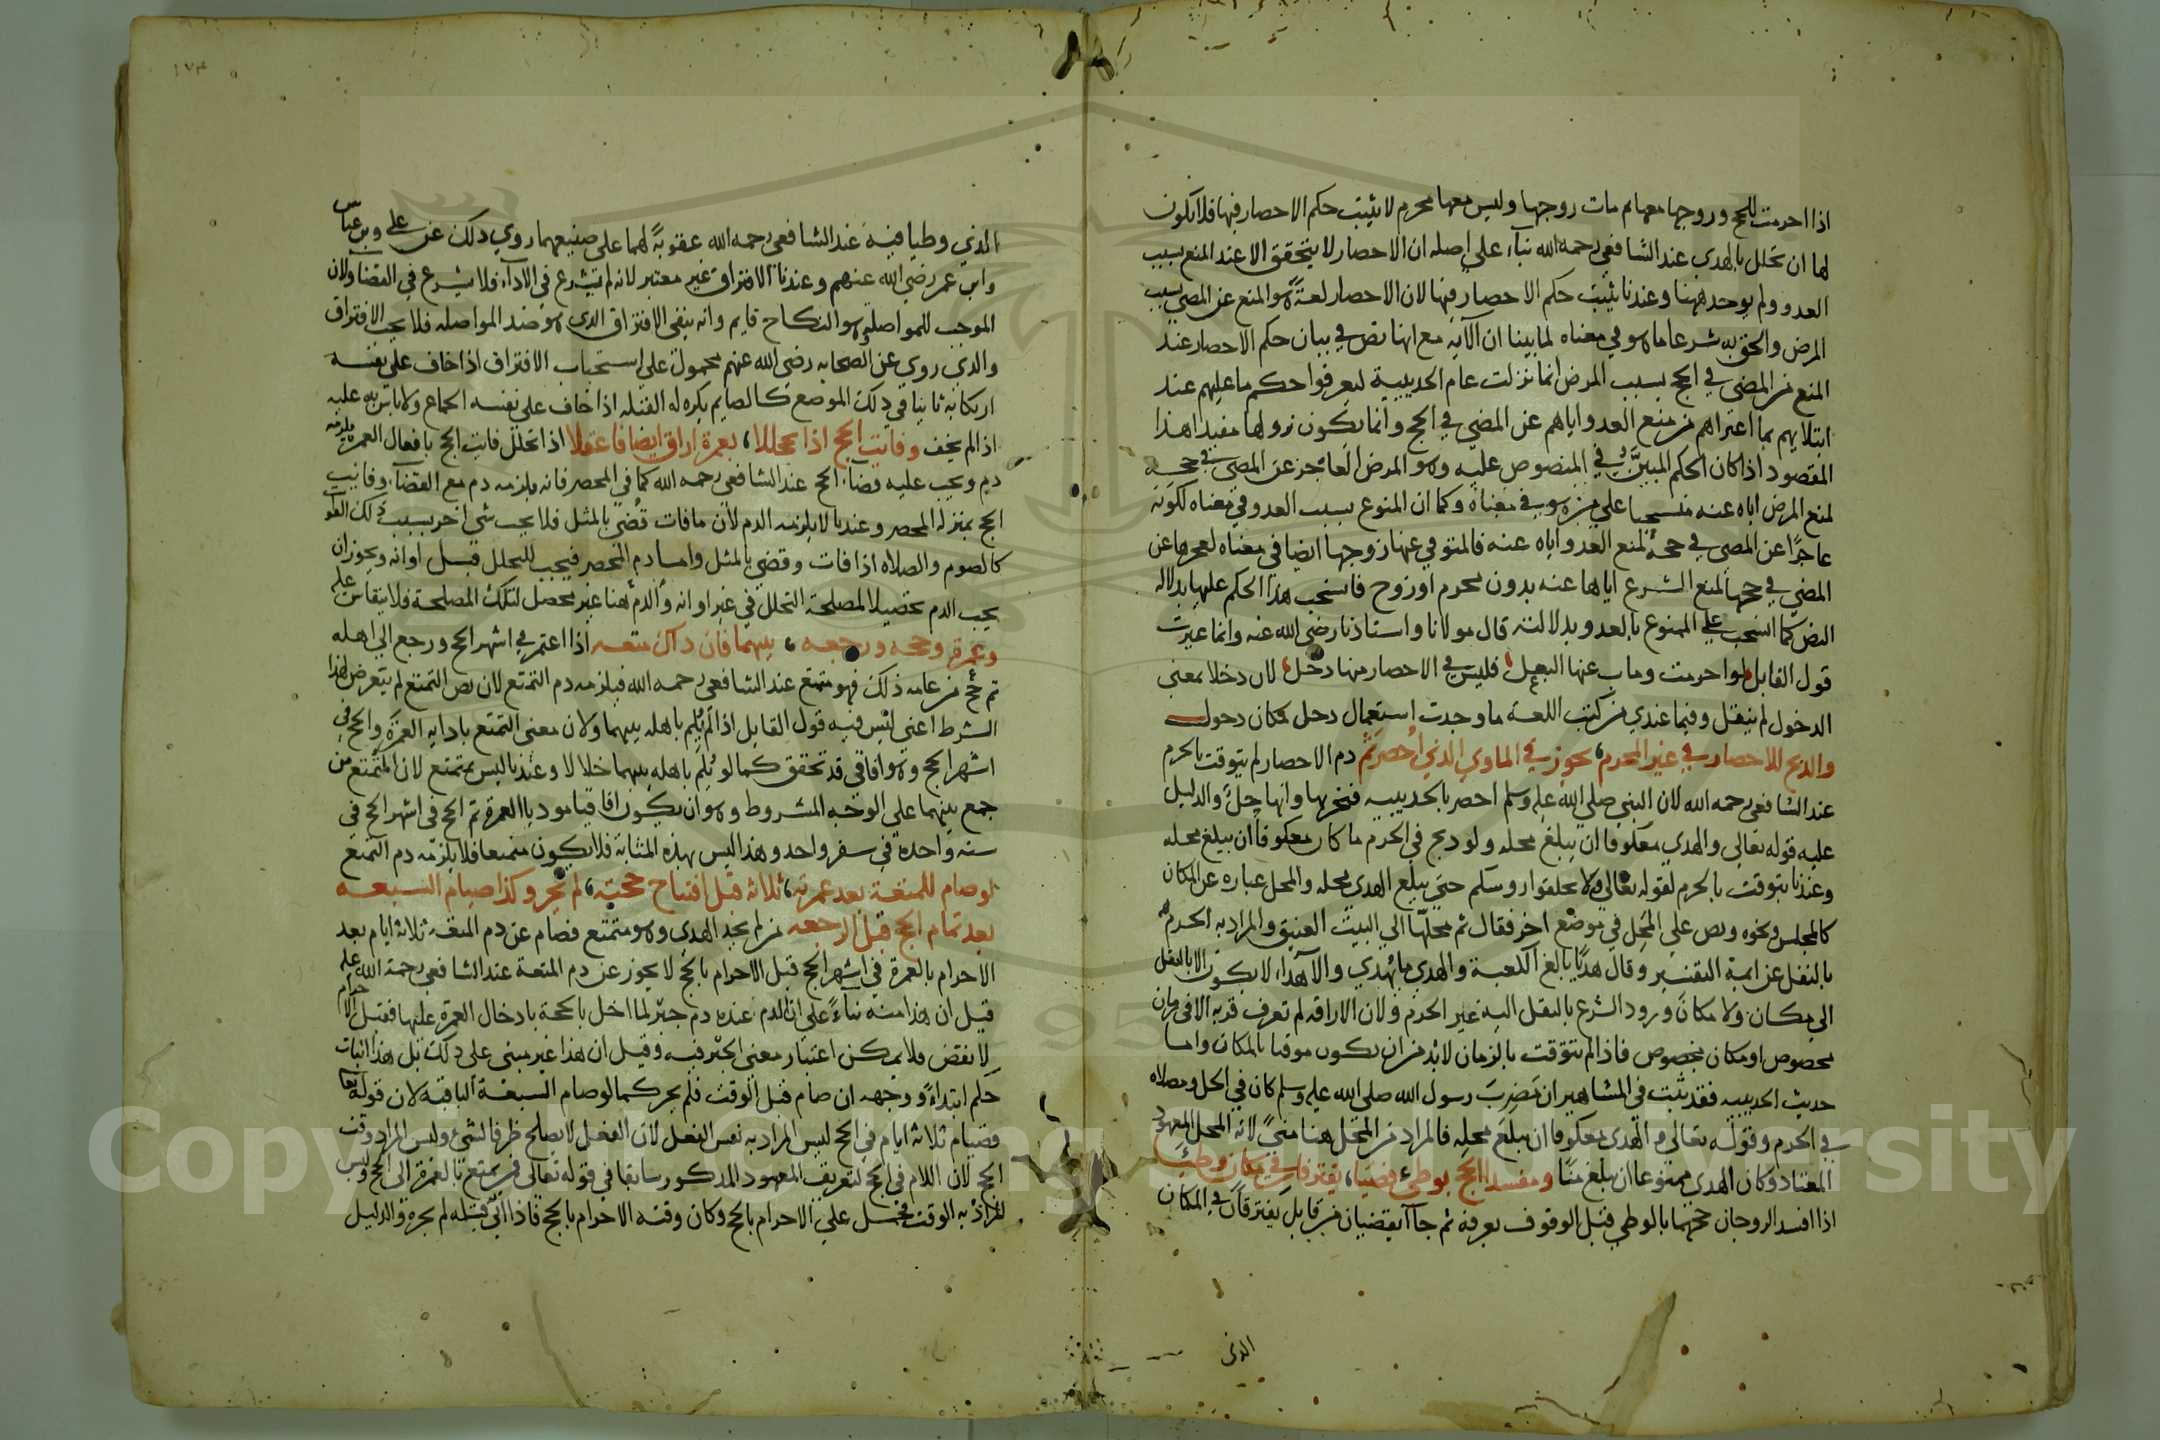 اذا احرمت للحج وزوجها معها ثم مات زوجها وليس معها محرم لا يثبت حكم الاحصار فيها فلا يكون
لها ان تحلل بالهدي عند الشافعي رحمه الله بناء على اصله ان الاحصار لا يتحقق الا عند المنع بسبب
العدو ولم يوجد ههنا وعندنا يثبت حكم الاحصار فيها لان الاحصار لغةً هو المنع عن المضي بسبب
المرض والحق به شرعا ما هو في معناه لما بينا ان الآية مع انها نص في بيان حكم الاحصار عند
المنع من المضي في الحج بسبب المرض انما نزلت عام الحديبية ليعرفوا حكم ما عليهم عند
ابتلايهم بما اعتراهم من منع العدو اياهم عن المضي في الحج وانما يكون نزولها مفيدا هذا
المقصود اذا كان الحكم المبين في المنصوص عليه وهو المرض العاجز عن المضي في حجه
لمنع المرض اياه عنه منسحبا على من هو في معناه وكما ان الممنوع بسبب العدو في معناه لكونه
عاجزا عن المضي في حجه لمنع العدو اياه عنه فالمتوفي عنها زوجها ايضا في معناه لعجزها عن
المضي في حجها لمنع الشرع اياها عنه بدون محرم او زوج فانسحب هذا الحكم عليها بدلالة
النص كما انسحب على الممنوع بالعدو بدلالته قال مولانا واستاذنا رضي الله عنه وانما غيرت
قول القايل لو احرمت ومات عنها البعل فليس في الاحصار منها دخل لان دخلا بمعنى
الدخول لم ينقل وفيما عندي من كتب اللغة ما وجدت استعمال دخل مكان دخول
والذبح للاحصار في غير الحرم يجوز في الماوي الذي احصر ثم دم الاحصار لم يتوقت بالحرم
عند الشافعي رحمه الله لان النبي صلى الله عليه وسلم احصر بالحديبيه فنحر بها وانها حل والدليل
عليه قوله تعالى والهدي معكوفا ان يبلغ محله ولو ذبح في الحرم ما كان معكوفا ان يبلغ محله
وعندنا يتوقت بالحرم لقوله تعالى ولا تحلقوا روسكم حتى يبلغ الهدي محله والمحل عبارة عن المكان
كالمجلس ونحوه ونص على المحل في موضع اخر فقال ثم محلها الى البيت العتيق والمراد به الحرم
بالنقل عن ايمة التفسير وقال هديا بالغ الكعبة والهدي ما يهدي والاهداء لا يكون الا بالنقل
الى مكان ولا مكان ورود الشرع بالنقل اليه غير الحرم ولان الاراقة لم تعرف قربة الا في زمان
مخصوص او مكان مخصوص فاذا لم يتوقت بالزمان لابد من ان يكون موقتا بالمكان واما
حديث الحديبيه فقد ثبت في المشاهير ان مضرب رسول الله صلى الله عليه وسلم كان في الحل ومصلاه
في الحرم وقوله تعالى والهدي معكوفا ان يبلغ محله فالمراد من المحل هنا منى لانه المحل المعهود
المعتاد وكان الهدي ممنوعا ان يبلغ منا ومفسدا الحج بوطئ قضيا يفترقان في مكان وطئا
اذا افسد الزوجان حجهما بالوطي قبل الوقوف بعرفة ثم جاآ يقضيان من قابل يفترقان في المكان
الذي
١٧٣
الذي وطيا فيه عند الشافعي رحمه الله عقوبةً لهما على صنيعهما روي ذلك عن علي وبن عباس
وابن عمر رضي الله عنهم وعندنا الافتراق غير معتبر لانه لم يشرع في الاداء فلا يشرع في القضا ولان
الموجب للمواصلة وهو النكاح قايم وانه ينفي الافتراق الذي هو ضد المواصله فلا يجب الافتراق
والذي روي عن الصحابه رضي الله عنهم محمول على استحباب الافتراق اذا خاف على نفسه
ارتكابه ثانيا في ذلك الموضع كالصايم يكره له القبلة اذا خاف على نفسه الجماع ولا باس به عليه
اذا لم يخف وفايت الحج اذا تحللا بعمرة اراق ايضا فاعقلا اذا تحلل فايت الحج بافعال العمرة يلزمه
دم ويجب عليه قضاء الحج عند الشافعي رحمه الله كما في المحصر فانه يلزمه دم مع القضاء وفايت
الحج بمنزلة المحصر وعندنا لا يلزمه الدم لان ما فات قضي بالمثل فلا يجب شي اخر بسبب ذلك الفوا
كالصوم والصلاه اذا فات وقضي بالمثل واما دم المحصر فيجب للتحلل قبل اوانه ويجوز ان
يجب الدم تحصيلا لمصلحة التحلل في غير اوانه والدم هنا غير محصل لتلك المصلحة فلا يقاس عليه
وعمرة وحجه ورجعه بينهما فان ذاك متعه اذا اعتمر في اشهر الحج ورجع الى اهله
ثم حج من عامه ذلك فهو متمتع عند الشافعي رحمه الله فيلزمه دم التمتع لان نص التمتع لم يتعرض لهذا
الشرط اعني ليس فيه قول القايل اذا لم يلم باهله بينهما ولان معنى التمتع باداية العمرة والحج في
اشهر الحج وهو افاقي قد تحقق كما لو يلم باهله بينهما حلالا وعندنا ليس بمتمتع لان المتمتع من
جمع بينهما على الوجه المشروط وهو ان يكون افاقيا موديا العمرة ثم الحج في اشهر الحج في
سنه واحدة في سفر واحد وهذا ليس بهذه المثابة فلا يكون متمتعا فلا يلزمه دم التمتع
لو صام للمتعة بعد عمرته ثلاثة قبل افتتاح حجته لم يجز وكذا صيام السبعه
بعد تمام الحج قبل الرجعه من لم يجد الهدى وهو متمتع فصام عن دم المتعة ثلاثة ايام بعد
الاحرام بالعمرة في اشهر الحج قبل الاحرام بالحج لا يجوز عن دم المتعة عند الشافعي رحمة الله عليه
قيل ان هذا منه بناءً على ان الدم عنده دم جبر لما اخل بالحجة بادخال العمرة عليها فقبل الاحرام
لا نقض فلا يمكن اعتبار معنى الجبر فيه وقيل ان هذا غير مبني على ذلك بل هذا اثبات
حكم ابتداءً ووجهه ان صام قبل الوقت فلم يجز كما لو صام السبعة الباقية لان قوله تعالى
فصيام ثلاثة ايام في الحج ليس المراد به نفس الفعل لان الفعل لا يصلح ظرفا لشئ وليس المراد وقت
الحج لان اللام في الحج لتعريف المعهود المذكور سابقا في قوله تعالى فمن تمتع بالعمرة الى الحج وليس
المراد به الوقت فيحمل على الاحرام بالحج وكان وقته الاحرام بالحج فاذا اتى قبله لم يجزه والدليل
Copyright © King Saud University